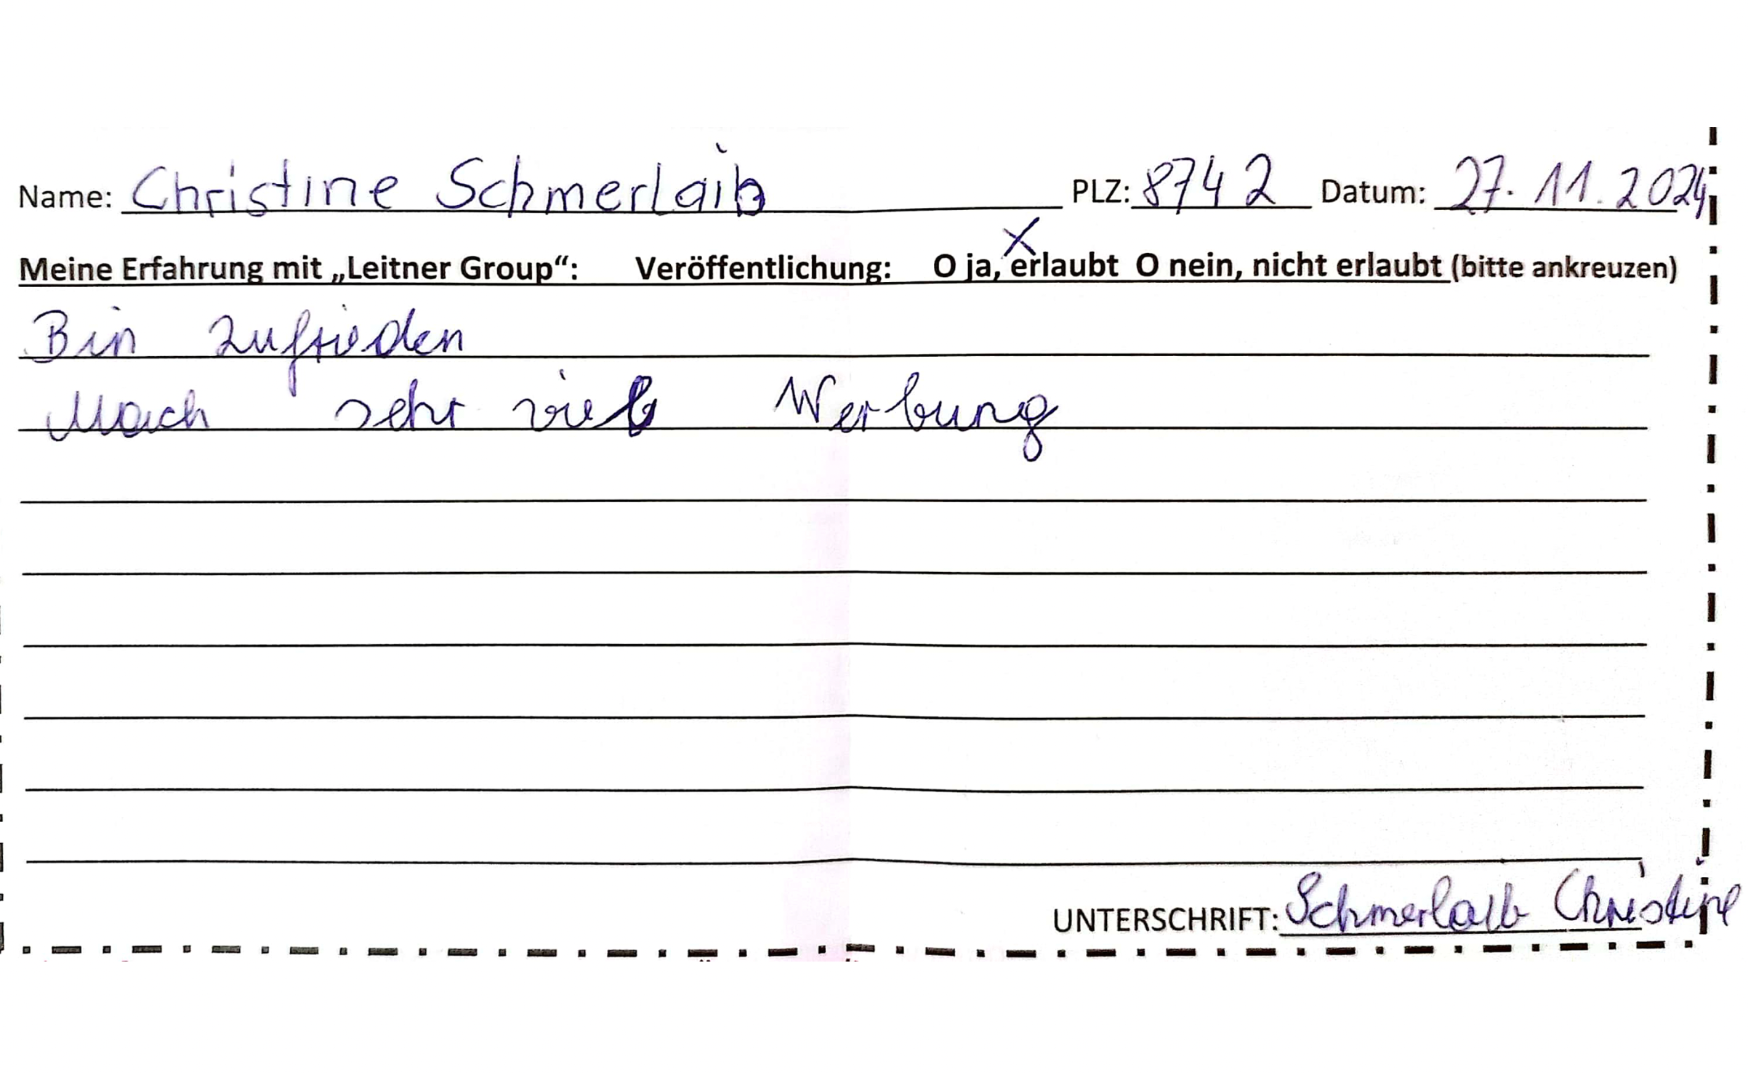 Name: Christine Schmerlaib PLZ: 8742 Datum: 27.11.2024
Meine Erfahrung mit „Leitner Group“: Veröffentlichung: O ja, erlaubt O nein, nicht erlaubt (bitte ankreuzen)
Bin zufrieden
Mach sehr viel Werbung
UNTERSCHRIFT: Schmerlaib Christine